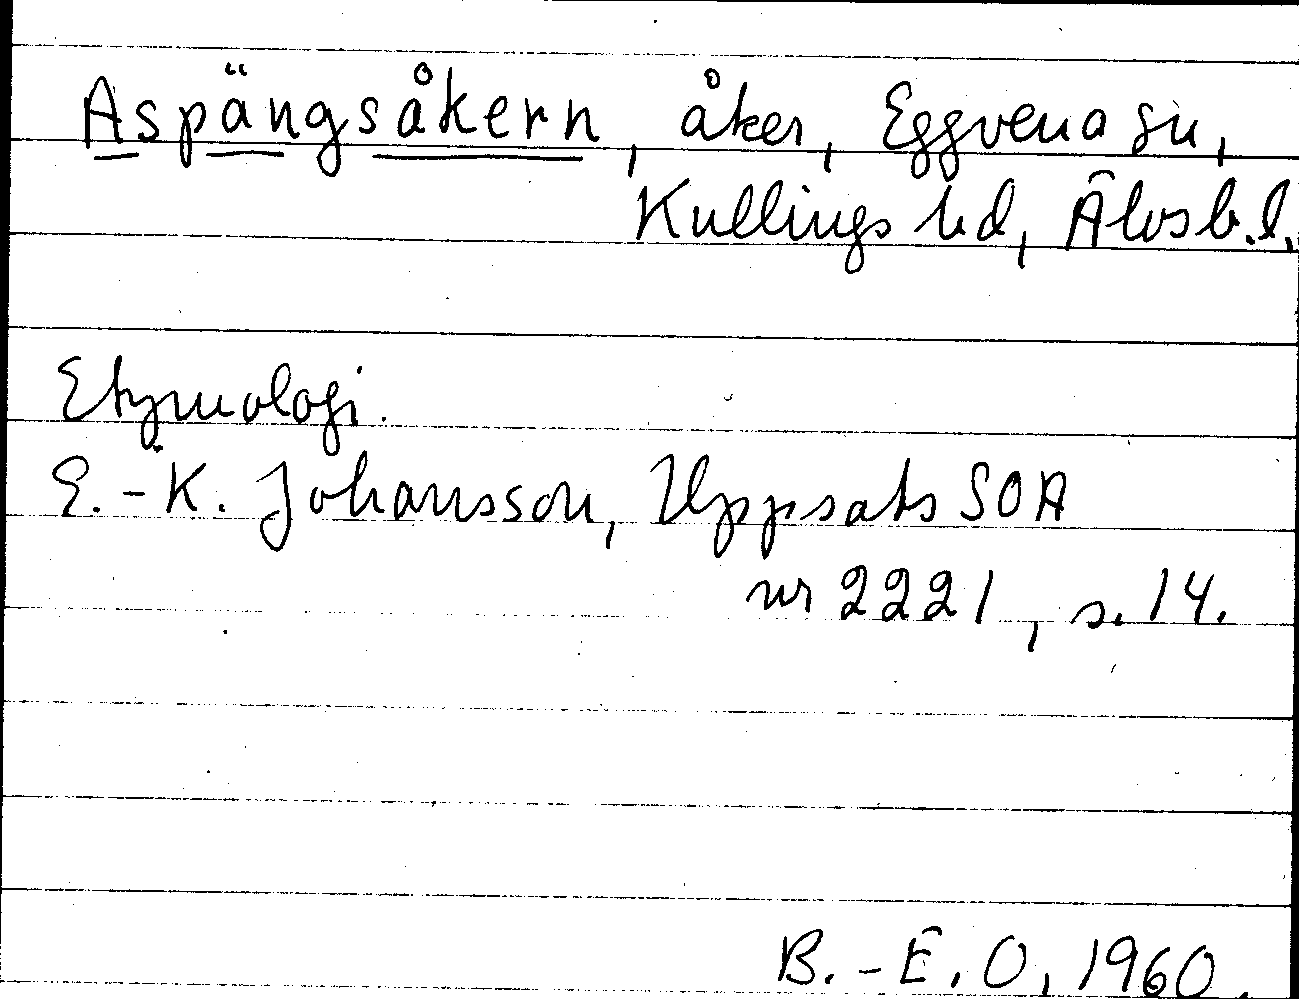 Aspängsåkern, åker, Eggvena sn,
Kullings hd, Älvsb.l.
Etymologi.
E.-K. Johansson, Uppsats SOA
nr 2221, s. 14.
B.-E. O, 1960.